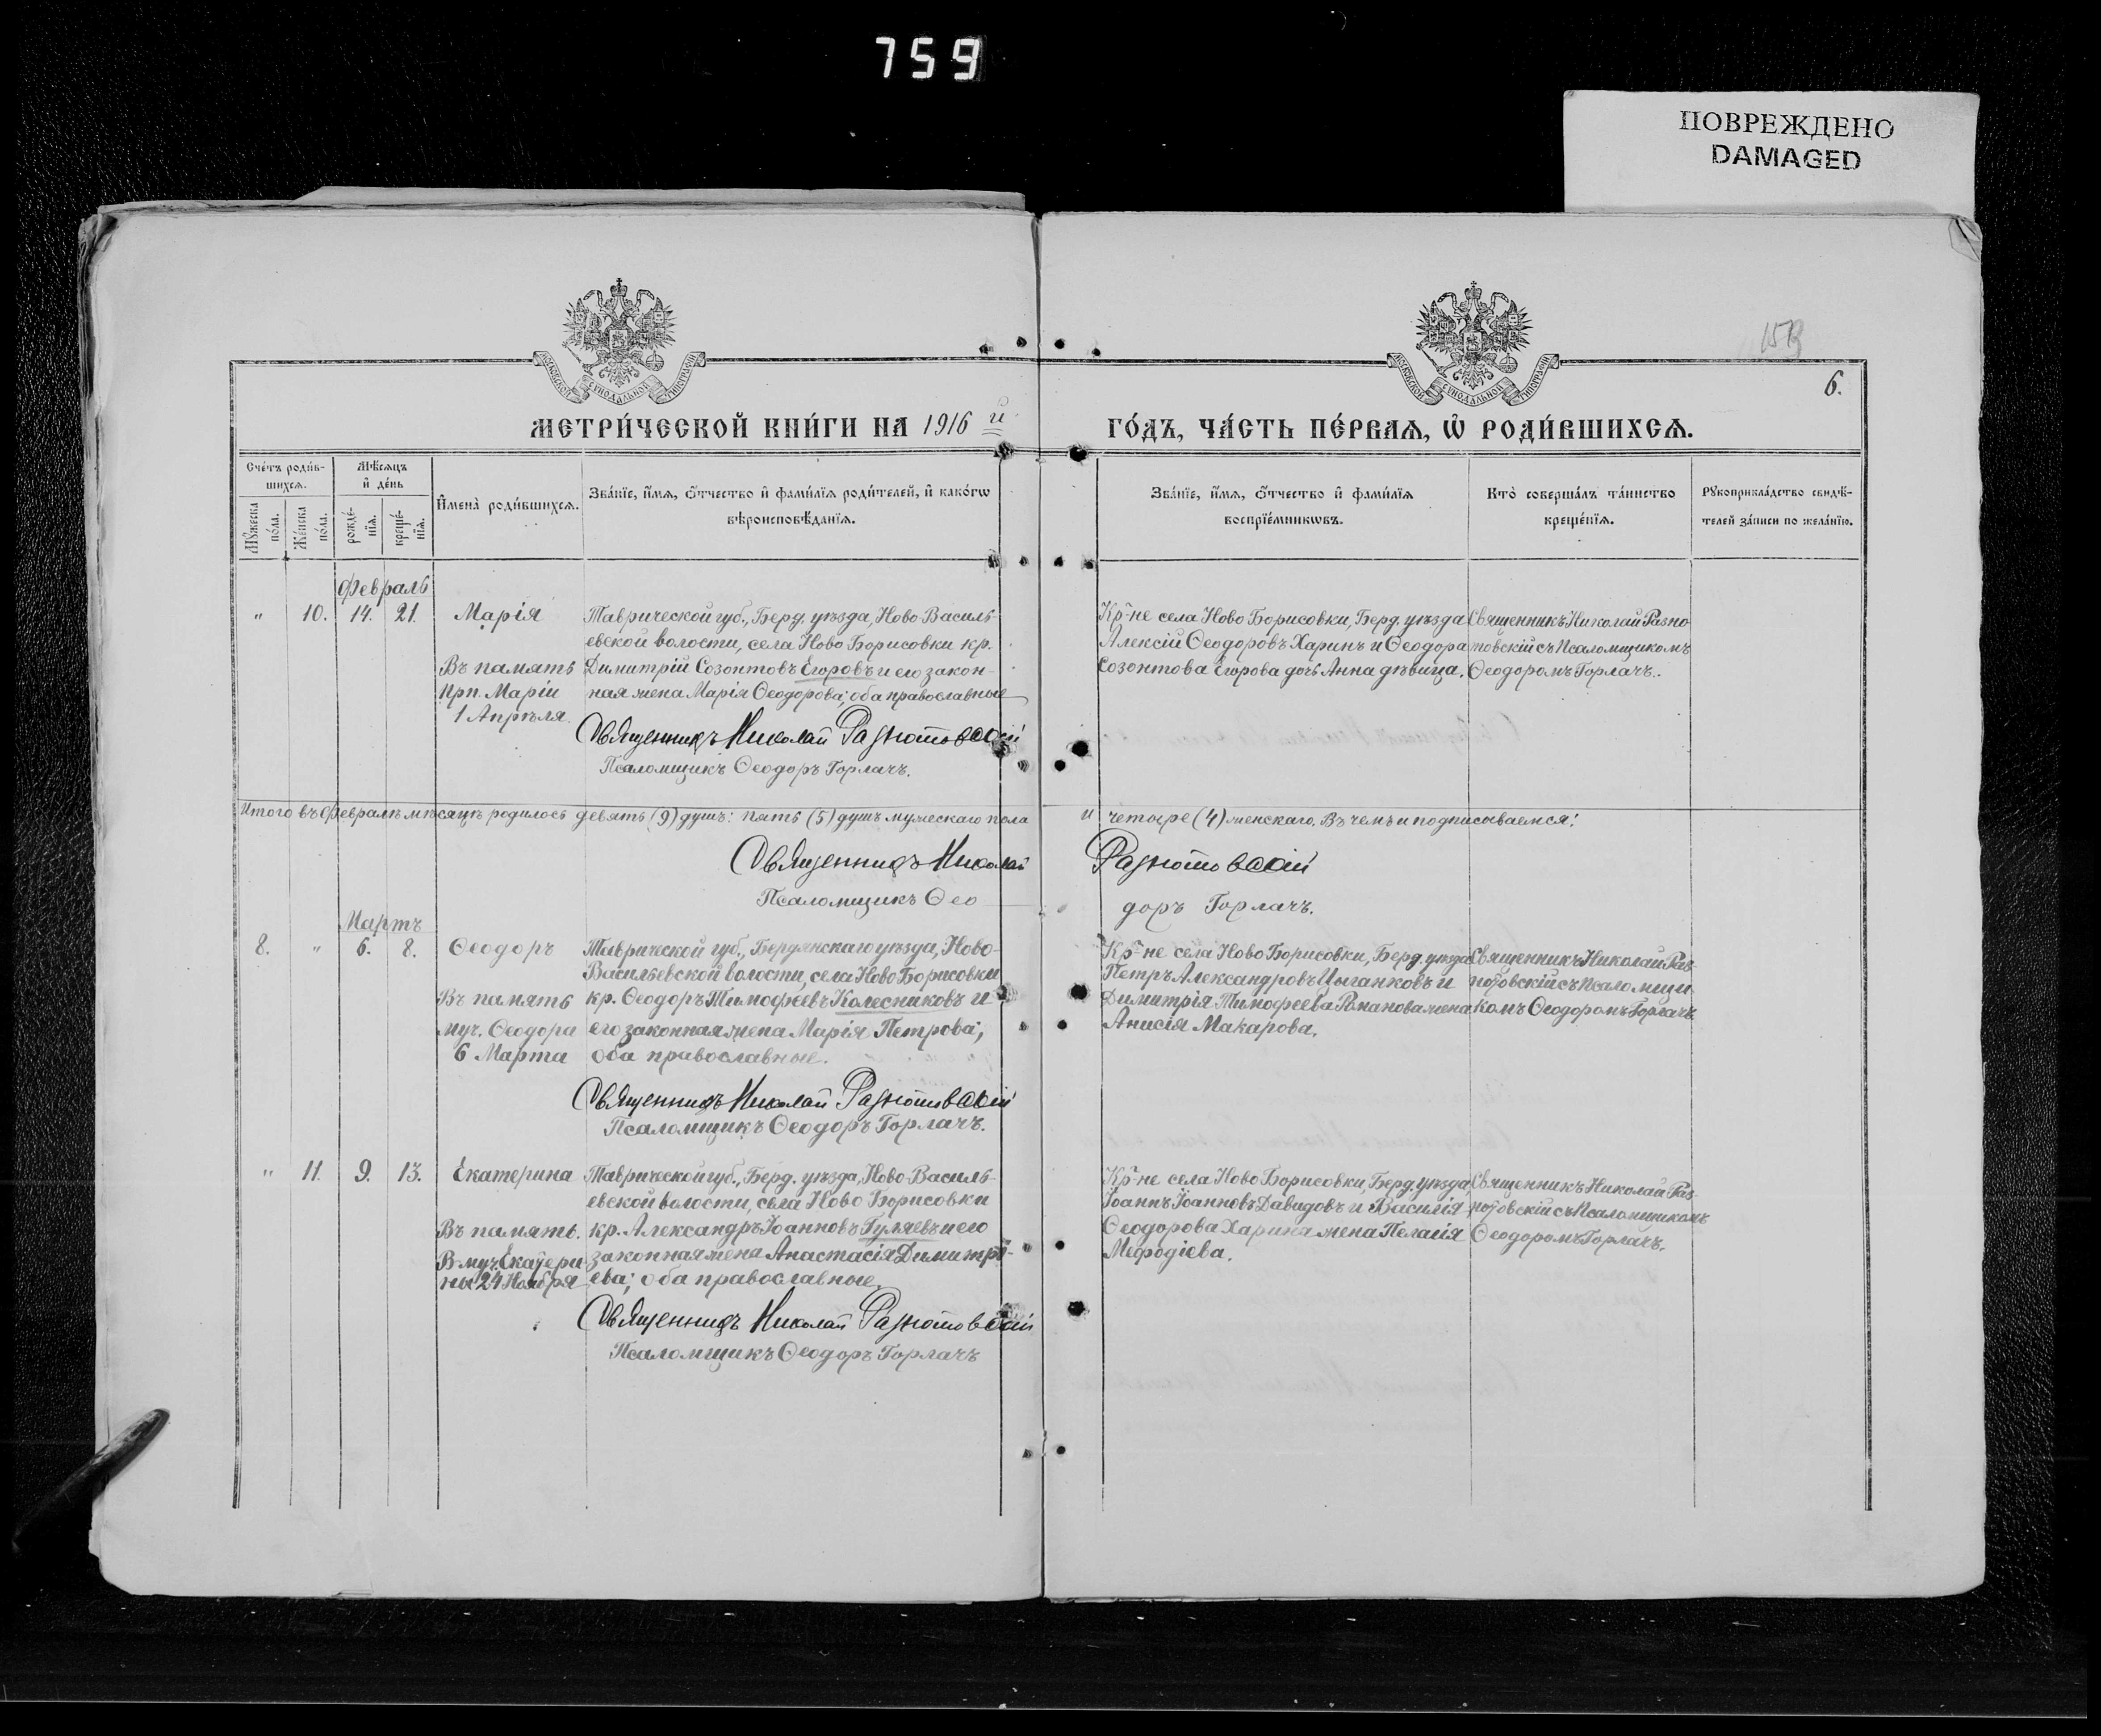 759
ПОВРЕЖДЕНО
DAMAGED
153
6.
МОСКОВСКОЙ СѴНОДАЛЬНОЙ ТИПОГРАФІИ
МОСКОВСКОЙ СѴНОДАЛЬНОЙ ТИПОГРАФІИ
МЕТРИ́ЧЕСКОЙ КНИ́ГИ НА 1916 й
ГО́ДЪ, ЧА́СТЬ ПЕ́РВАѦ, Ѡ҆ РОДИ́ВШИХСѦ.
Сче́тъ роди́в-
шихсѧ.
Мꙋ́жеска по́ла.
Же́нска по́ла.
Мѣ́сѧцъ
и҆ де́нь
рожде́-
нїѧ.
креще́-
нїѧ.
И҆мена̀ роди́вшихсѧ.
Зва́нїе, и҆́мѧ, ѻ҆́тчество и҆ фами́лїѧ роди́телей, и҆ како́гѡ
вѣроисповѣ́данїѧ.
Зва́нїе, и҆́мѧ, ѻ҆́тчество и҆ фами́лїѧ
воспрїе́мникѡвъ.
Кто̀ соверша́лъ та́инство
креще́нїѧ.
Рꙋкоприкла́дство свидѣ́-
телей за́писи по жела́нїю.
Февраль
" 10. 14. 21. Марія
Въ память
Прп. Маріи
1 Апрѣля.
Таврической губ., Берд. уѣзда, Ново-Василь-
евской волости, села Ново Борисовки кр.
Димитрій Созонтовъ Егоровъ и его закон-
ная жена Марія Ѳеодорова; оба православные
Священникъ Николай Разнотовскій
Псаломщикъ Ѳеодоръ Горлачъ.
Кр-не села Ново Борисовки, Берд. уѣзда
Алексій Ѳеодоровъ Харинъ и Ѳеодора
Созонтова Егорова дочь Анна дѣвица.
Священникъ Николай Разно
товскій съ Псаломщикомъ
Ѳеодоромъ Горлачъ.
Итого въ Февралѣ мѣсяцѣ родилось девять (9) душъ: пять (5) душъ мужескаго пола и четыре (4) женскаго. Въ чемъ и подписываемся:
Священникъ Николай Разнотовскій
Псаломщикъ Ѳео доръ Горлачъ.
Мартъ
8. " 6. 8. Ѳеодоръ
Въ память
муч. Ѳеодора
6 Марта
Таврической губ., Бердянскаго уѣзда, Ново-
Васильевской волости, села Ново Борисовки
кр. Ѳеодоръ Тимофеевъ Колесниковъ и
его законная жена Марія Петрова;
оба православные.
Священникъ Николай Разнотовскій
Псаломщикъ Ѳеодоръ Горлачъ.
Кр-не села Ново Борисовки, Берд. уѣзда
Петръ Александровъ Цыганковъ и
Димитрія Тимофеева Романова жена
Анисія Макарова.
Священникъ Николай Раз-
нотовскій съ Псаломщи
комъ Ѳеодоромъ Горлачъ
" 11. 9. 13. Екатерина
Въ память.
В. муч. Екатери
ны 24 Ноября
Таврической губ., Берд. уѣзда, Ново-Василь-
евской волости, села Ново Борисовки
кр. Александръ Іоанновъ Гуляевъ и его
законная жена Анастасія Димитрі-
ева; оба православные.
Священникъ Николай Разнотовскій
Псаломщикъ Ѳеодоръ Горлачъ
Кр-не села Ново Борисовки, Берд. уѣзда
Іоаннъ Іоанновъ Давидовъ и Василія
Ѳеодорова Харина жена Пелагія
Мефодіева.
Священникъ Николай Раз-
нотовскій съ Псаломщикомъ
Ѳеодоромъ Горлачъ.